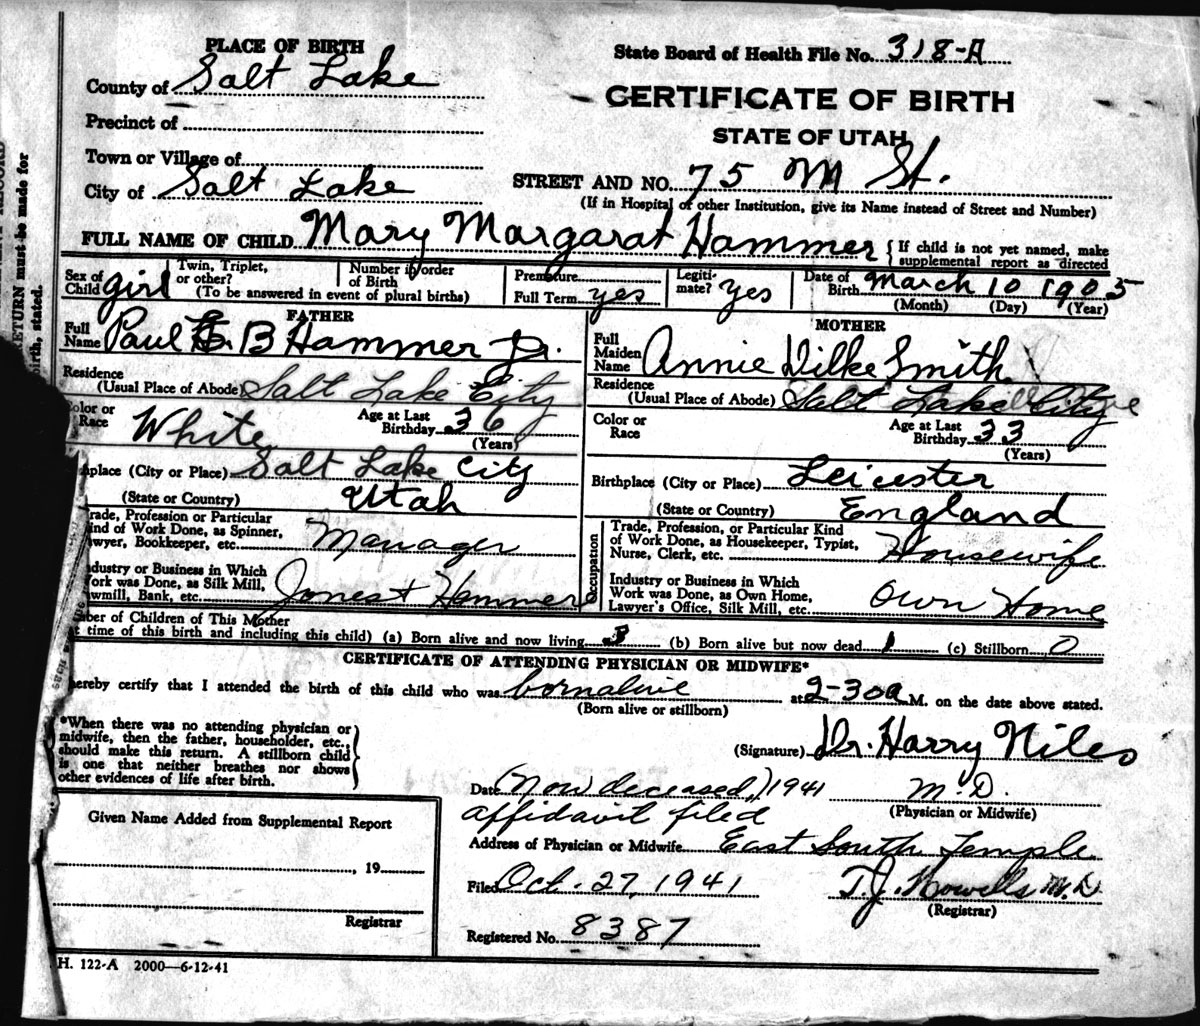 PLACE OF BIRTH
State Board of Health File No. 318-A
County of Salt Lake
CERTIFICATE OF BIRTH
Precinct of
STATE OF UTAH
Town or Village of
City of Salt Lake
STREET AND NO. 75 M St.
(If in Hospital or other Institution, give its Name instead of Street and Number)
FULL NAME OF CHILD Mary Margarat Hammer { If child is not yet named, make supplemental report as directed
Sex of Child girl
Twin, Triplet, or other?
Number in order of Birth
(To be answered in event of plural births)
Premature
Full Term yes
Legitimate? yes
Date of Birth March 10 1905
(Month) (Day) (Year)
FATHER
Full Name Paul E. B Hammer Jr.
Residence
(Usual Place of Abode) Salt Lake City
Color or Race White
Age at Last Birthday 36
(Years)
place (City or Place) Salt Lake City
(State or Country) Utah
rade, Profession or Particular
ind of Work Done, as Spinner,
wyer, Bookkeeper, etc. Manager
dustry or Business in Which
ork was Done, as Silk Mill,
wmill, Bank, etc. Jones + Hammer
MOTHER
Full Maiden Name Annie Dilke Smith
Residence
(Usual Place of Abode) Salt Lake City
Color or Race
Age at Last Birthday 33
(Years)
Birthplace (City or Place) Leicester
(State or Country) England
Occupation
Trade, Profession, or Particular Kind
of Work Done, as Housekeeper, Typist,
Nurse, Clerk, etc. Housewife
Industry or Business in Which
Work was Done, as Own Home,
Lawyer's Office, Silk Mill, etc. Own Home
ber of Children of This Mother
t time of this birth and including this child) (a) Born alive and now living 3 (b) Born alive but now dead 1 (c) Stillborn 0
CERTIFICATE OF ATTENDING PHYSICIAN OR MIDWIFE*
hereby certify that I attended the birth of this child who was born alive at 2-30 a M. on the date above stated.
(Born alive or stillborn)
*When there was no attending physician or
midwife, then the father, householder, etc.,
should make this return. A stillborn child
is one that neither breathes nor shows
other evidences of life after birth.
(Signature) Dr. Harry Niles
Date (Now deceased,) 1941 M.D.
(Physician or Midwife)
affidavit filed
Address of Physician or Midwife East South Temple
Filed Oct. 27, 1941 T.J. Howells M.D.
(Registrar)
Registered No. 8387
Given Name Added from Supplemental Report
, 19
Registrar
H. 122-A 2000—6-12-41
RETURN must be made for
birth, stated.